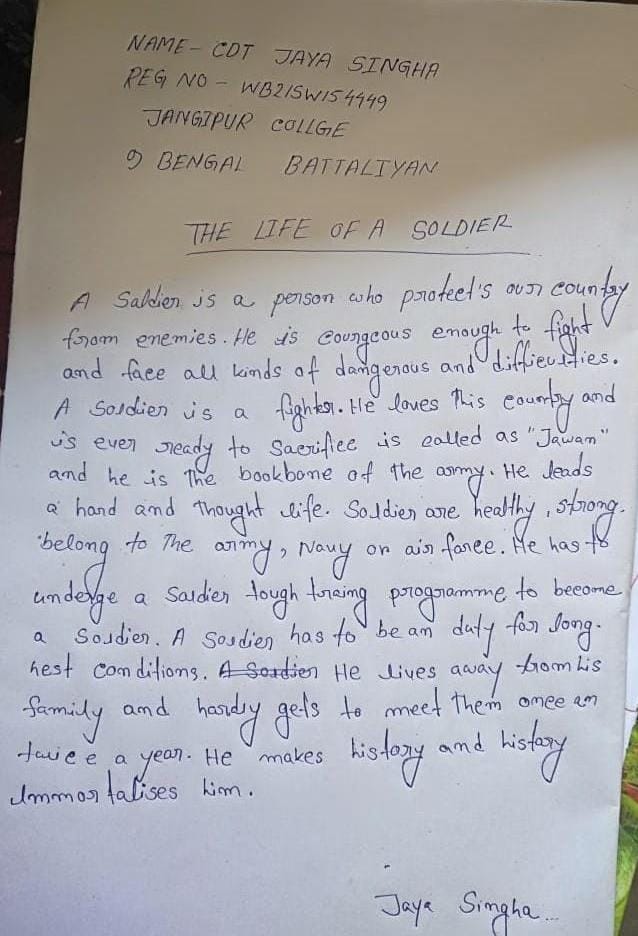 NAME - CDT JAYA SINGHA
REG NO - WB21SWIS4449
JANGIPUR COLLGE
9 BENGAL BATTALIYAN
THE LIFE OF A SOLDIER
A Saldier is a person who protect's our country
from enemies. He is Courgeous enough to fight
and face all kinds of dangerous and difficulties.
A Soldier is a fighter. He loves this country and
is ever ready to Sacrifice is called as "Jawan"
and he is The bookbone of the army. He leads
a hand and thought life. Soldier are healthy, strong.
belong to The army, Navy or air force. He has to
underge a Saldier tough traing programme to become
a Soldier. A Soldier has to be an duty for long.
hest conditions. A Soldier He lives away from his
family and hardy gets to meet them once an
twice a year. He makes history and history
Immortalises him.
Jaya Singha...